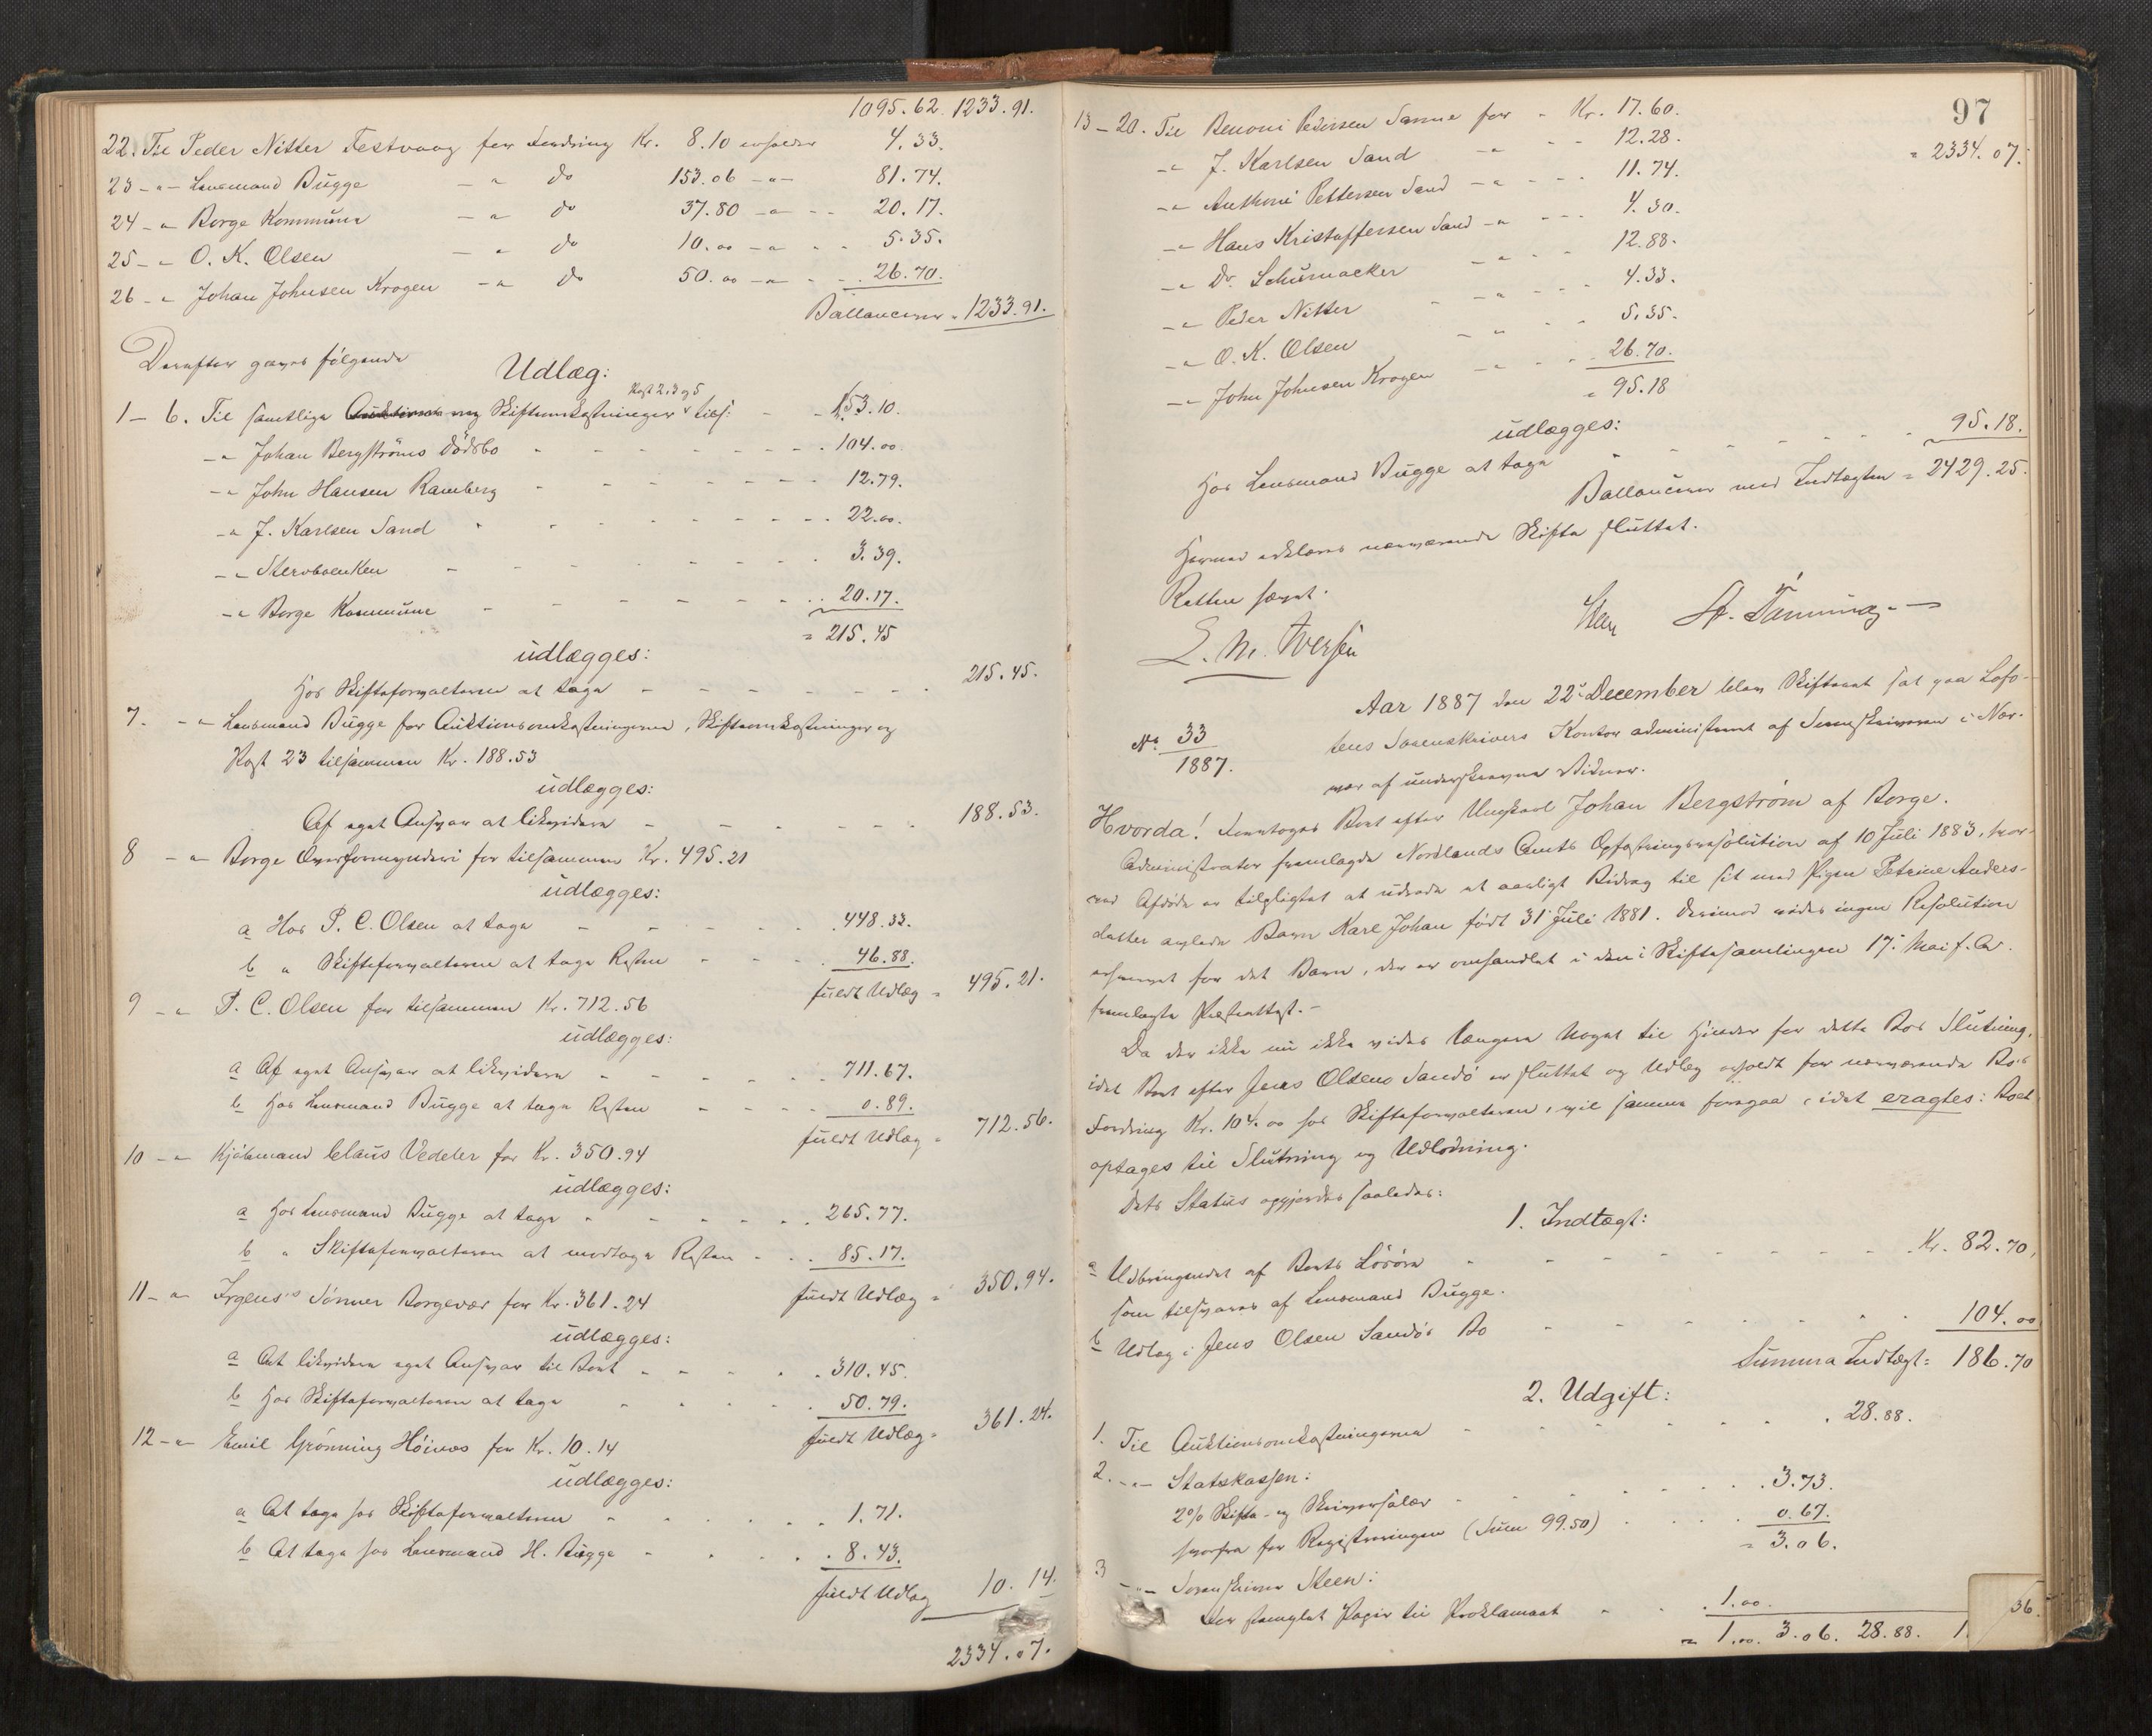 1095.62. 1233.91.
22. Til Peder Nitter Festvaag for Fordring Kr. 8.10 erholder 4.33.
23 -"- Lensmand Bugge -"- do 153.06 -"- 81.74.
24 -"- Borge Kommune -"- do 37.80 -"- 20.17.
25 -"- O. K. Olsen -"- do 10.00 -"- 5.35.
26 -"- Johan Johnsen Krogen -"- do 50.00 -"- 26.70.
Ballancerer = 1233.91.
Derefter gjøres følgende
Udlæg:
Post 2, 3 og 5
1 - 6. Til samtlige Auktions og Skifteomkostninger tils: 53.10.
-"- Johan Bergströms Dödsbo 104.00.
-"- John Hansen Ramberg 12.79.
-"- J. Karlsen Sand 22.00.
-"- Stervboenken 3.39.
-"- Borge Kommune 20.17.
= 215.45
udlægges:
Hos Skifteforvalteren at tage 215.45.
7. -"- Lensmand Bugge for Auktionsomkostningerne, Skifteomkostninger og
Post 23 tilsammen Kr. 188.53
udlægges:
Af eget Ansvar at likvidere 188.53.
8 -"- Borge Overformynderi for tilsammen Kr. 495.21
udlægges:
a Hos P. C. Olsen at tage 448.33.
b " Skifteforvalteren at tage Resten 46.88.
fuldt Udlæg = 495.21.
9 -"- P. C. Olsen for tilsammen Kr. 712.56
udlægges:
a Af eget Ansvar at likvidere 711.67.
b Hos Lensmand Bugge at tage Resten 0.89.
fuldt Udlæg = 712.56.
10 -"- Kjöbmand Claus Vedeler for Kr. 350.94
udlægges:
a Hos Lensmand Bugge at tage 265.77.
b " Skifteforvalteren at modtage Resten 85.17.
fuldt Udlæg = 350.94.
11 -"- Irgens's Sönner Borgevær for Kr. 361.24
udlægges:
a At likvidere eget Ansvar til Boet 310.45.
b Hos Skifteforvalteren at tage 50.79.
fuldt Udlæg = 361.24.
12 -"- Emil Grönning Höines for Kr. 10.14
udlægges:
a At tage hos Skifteforvalteren 1.71.
b At tage hos Lensmand H. Bugge 8.43.
fuldt Udlæg 10.14.
2334.07.
97
13 - 20. Til Benoni Pedersen Sanne for Kr. 17.60.
= 2334.07.
-"- J. Karlsen Sand -"- 12.28.
-"- Anthoni Pettersen Sand -"- 11.74.
-"- Hans Kristoffersen Sand -"- 4.30.
-"- Dr. Schumacker -"- 12.88.
-"- Peder Nitter -"- 4.33.
-"- O. K. Olsen -"- 5.35.
-"- John Johnsen Krogen -"- 26.70.
= 95.18
udlægges:
Hos Lensmand Bugge at tage 95.18.
Ballancerer med Indtægten = 2429.25.
Hermed erklæres nærværende Skifte sluttet.
Retten hævet.
Steen
L. M. Iversen
Aar 1887 den 22de December blev Skifteret sat paa Lofo-
No 33
1887.
tens Sorenskrivers Kontor administreret af Sorenskriveren i Nær-
vær af underskrevne Vidner.
Hvorda! Foretoges Boet efter Ungkarl Johan Bergström af Borge.
Administrator fremlagde Nordlands Amts Opfostringsresolution af 10 Juli 1883, hvor-
ved Afdöde er tilpligtet at udrede et aarligt Bidrag til sit med Pigen Petrine Anders-
datter avlede Barn Karl Johan født 31 Juli 1881. Derimod vides ingen Resolution
erhvervet for det Barn, der er omhandlet i den i Skiftesamlingen 17 Mai f. A.
fremlagte Præsteattest. -
Da der ikke nu ikke vides længere Noget til Hinder for dette Bos Slutning,
idet Boet efter Jens Olsens Sandö er sluttet og Udlæg erholdt for nærværende Bos
Fordring Kr. 104.00 hos Skifteforvalteren, vil samme foregaa, idet eragtes: Boet
optages til Slutning og Udlodning.
Dets Status opgjordes saaledes:
1. Indtægt:
a Udbringendet af Boets Lösöre Kr. 82.70,
som tilsvares af Lensmand Bugge.
b Udlæg i Jens Olsen Sandös Bo 104.00
Summa Indtægt: 186.70
2. Udgift:
1. Til Auktionsomkostningerne 28.88.
2. -"- Statskassen:
2% Skifte- og Skriversalær 3.73.
hvorfra for Registreringen (Sum 99.50) 0.67.
= 3.06.
3 -"- Sorenskriver Steen:
For stemplet Papir til Proklamaet 1.00.
= 1.00. 3.06. 28.88. 1
36.